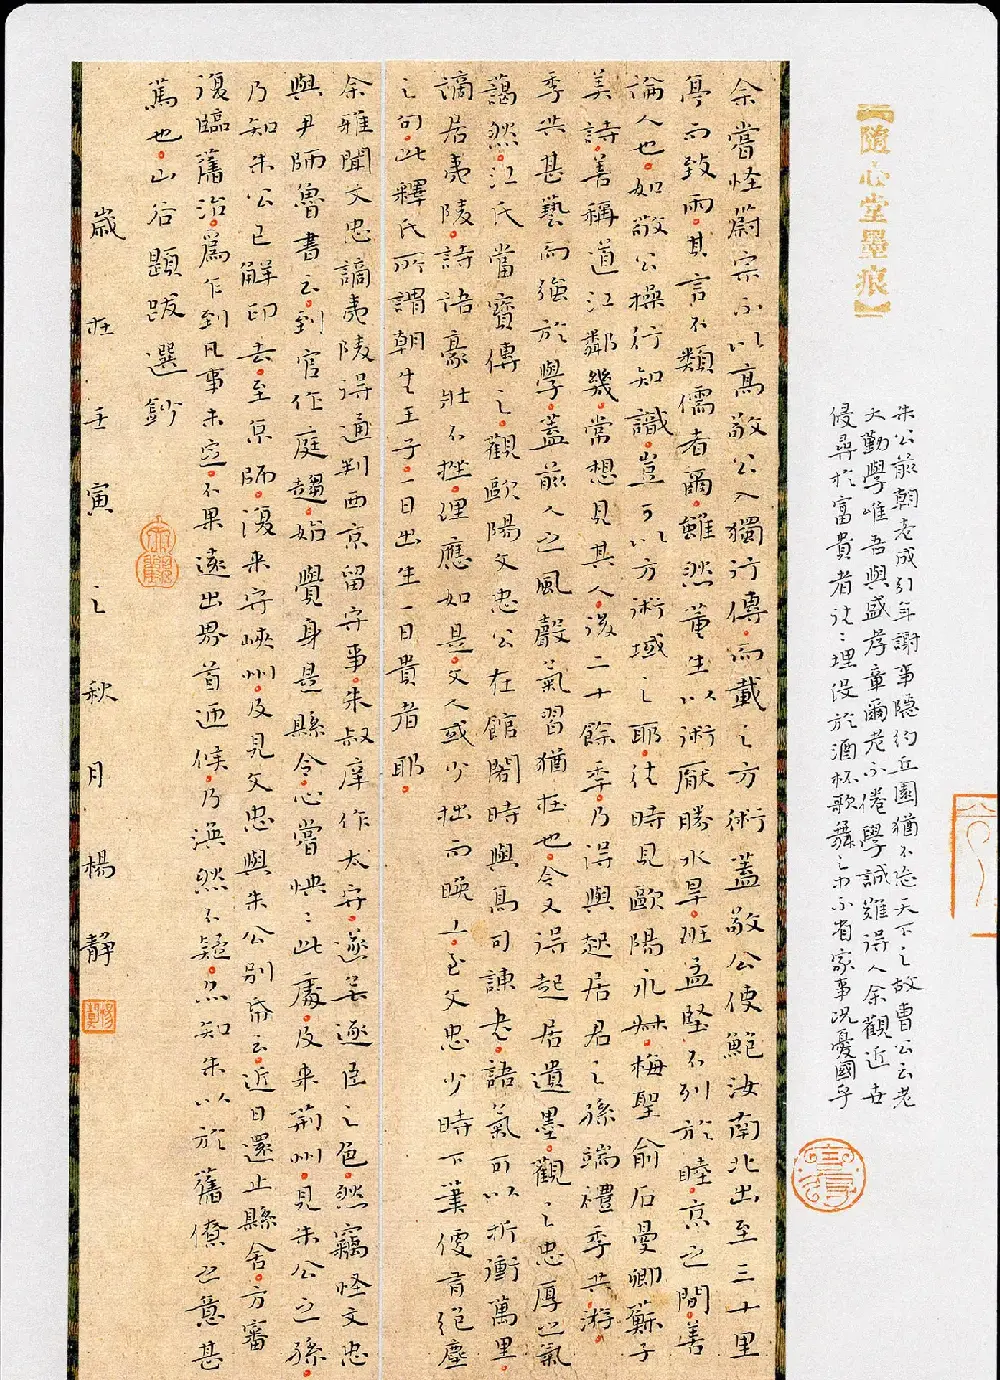 【隨心堂墨痕】
朱公前朝老成引年謝事隱約丘園猶不忘天下之故曹公云老
大勤學唯吾與盛孝章爾老而不倦學誠難得人余觀近世
侵尋於富貴者往〻埋沒於酒杯歌舞之中不省家事況憂國乎
余嘗怪蔚宗不以高敬公入獨行傳而載之方術蓋敬公使鮑汝南北出至三十里
亭而致雨其言不類儒者爾雖然董生以術厭勝水旱班孟堅不列於眭京之間善
論人也如敬公操行知識豈可以方術域之耶往時見歐陽永叔梅聖俞石曼卿蘇子
美詩善稱道江鄰幾常想見其人後二十餘季乃得與起居君之孫端禮季共游
季共甚藝而強於學蓋前人之風聲氣習猶在也今又得起居遺墨觀之忠厚之氣
藹然江氏當寶傳之觀歐陽文忠公在館閣時與高司諫書語氣可以折衝萬里
謫居夷陵詩語豪壯不挫理應如是文人或少拙而晚工至文忠少時下筆便有絕塵
之句此釋氏所謂朝生王子一日出生一日貴者耶
余雅聞文忠謫夷陵得通判西京留守事朱叔庠作太守遂無逐臣之色然竊怪文忠
與尹師魯書云到官作庭趨始覺身是縣令心嘗怏〻此處及来荊州見朱公之孫
乃知朱公已解印去至京師復来守峽州及見文忠與朱公別紙云近日還止縣舍方審
復臨舊治為乍到凡事未定不果遠出界首迎候乃渙然不疑亦知朱以於舊僚之意甚
篤也山谷題跋選鈔
歲在壬寅之秋月楊靜